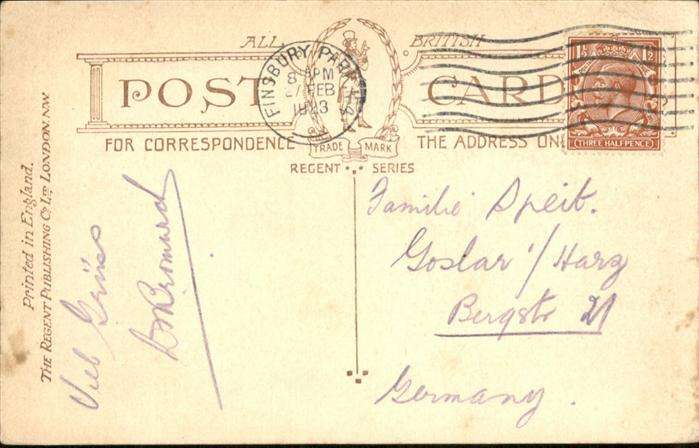 ALL BRITISH
POST CARD
FINSBURY PARK
8 PM
7 FEB
1923
1½ 1½
THREE HALFPENCE
FOR CORRESPONDENCE THE ADDRESS ON
TRADE MARK
REGENT SERIES
Printed in England.
THE REGENT PUBLISHING Co LTD LONDON. N.W.
Viele Grüss
Familie Speit.
Goslar i/Harz
Bergstr 21
Germany.